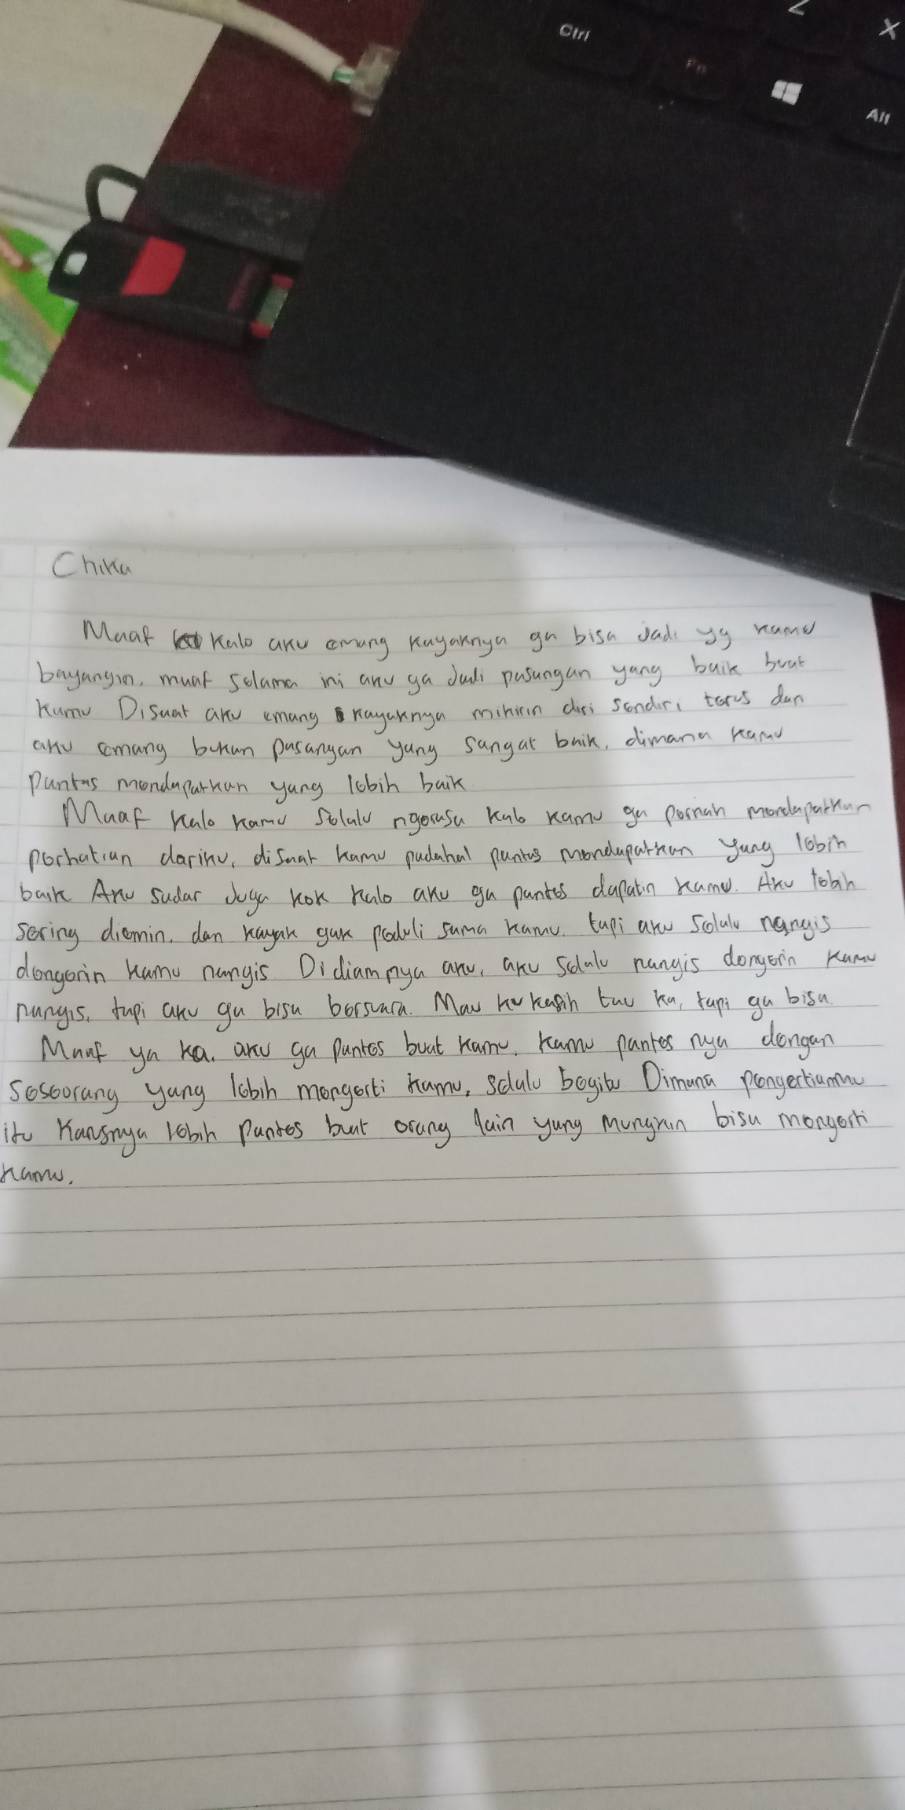 Ctrl
Fn
Alt
Z
X
Chika
Maaf kalo aku emang kayaknya ga bisa jadi yg kamu
bayangin. maaf selama ini aku ga jadi pasangan yang baik buat
kamu Disaat aku emang kayaknya mikirin diri sendiri terus dan
aku emang bukan pasangan yang sangat baik, dimana kamu
pantas mendapatkan yang lebih baik
Maaf kalo kamu selalu ngerasa kalo kamu ga pernah mendapatkan
perhatian dariku, disaat kamu padahal pantas mendapatkan yang lebih
baik Aku sadar juga kok kalo aku ga pantes dapatin kamu. Aku lebih
sering diemin. dan kayak gak peduli sama kamu. tapi aku selalu nangis
dengerin kamu nangis Didiamnya aku, aku selalu nangis dengerin kamu
nangis, tapi aku ga bisa bersuara. Mau ku kasih tau ka, tapi ga bisa
Maaf ya ka. aku ga pantes buat kamu. kamu pantes nya dengan
seseorang yang lebih mengerti kamu, selalu begitu Dimana pengertianmu
itu Kansnya lebih pantes buat orang lain yang mungkin bisa mengerti
kamu.